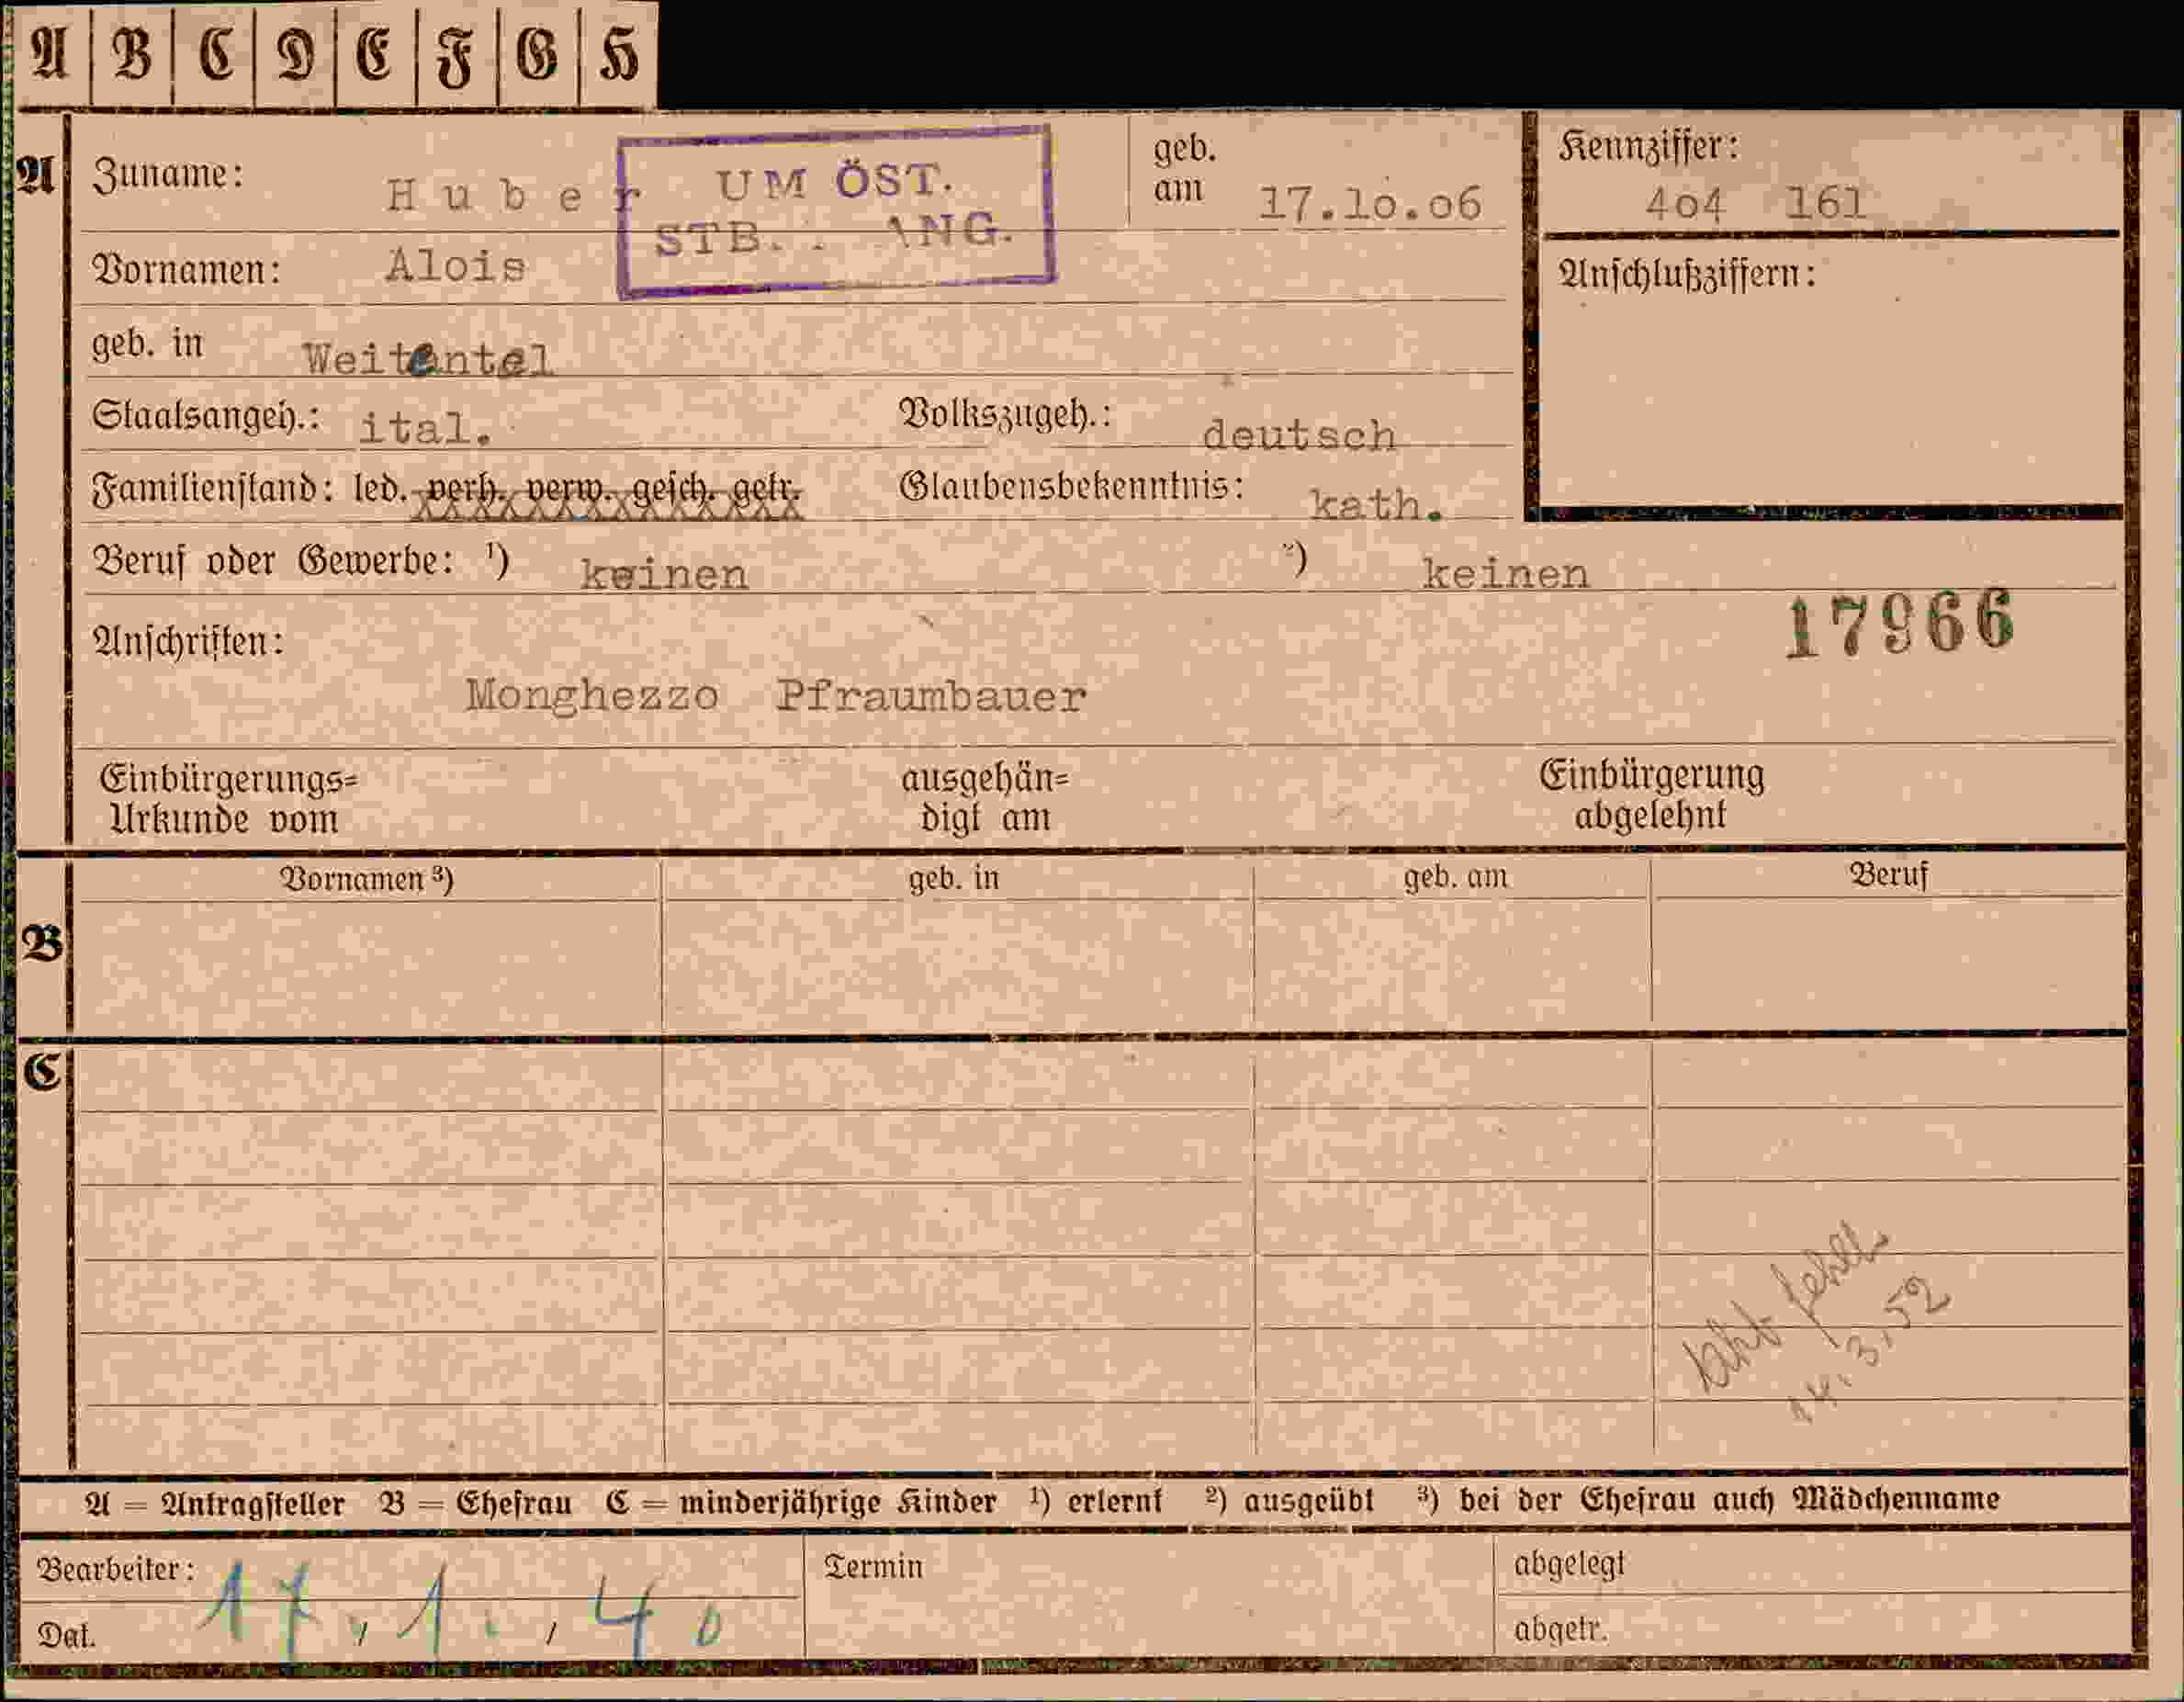 A B C D E F G H
A Zuname: Huber geb. am 17.10.06 Kennziffer: 404 161
UM ÖST.
STB. ANG.
Vornamen: Alois Anschlußziffern:
geb. in Weitentel
Staatsangeh.: ital. Volkszugeh.: deutsch
Familienstand: led. verh. verw. gesch. getr. Glaubensbekenntnis: kath.
Beruf oder Gewerbe: ¹) keinen ²) keinen
17966
Anschriften:
Monghezzo Pfraumbauer
Einbürgerungs= ausgehän= Einbürgerung
Urkunde vom digt am abgelehnt
Vornamen ³) geb. in geb. am Beruf
B
C
Akt fehlt
14.3.52
A = Antragsteller B = Ehefrau C = minderjährige Kinder ¹) erlernt ²) ausgeübt ³) bei der Ehefrau auch Mädchenname
Bearbeiter: Termin abgelegt
Dat. 17.1.40 abgetr.